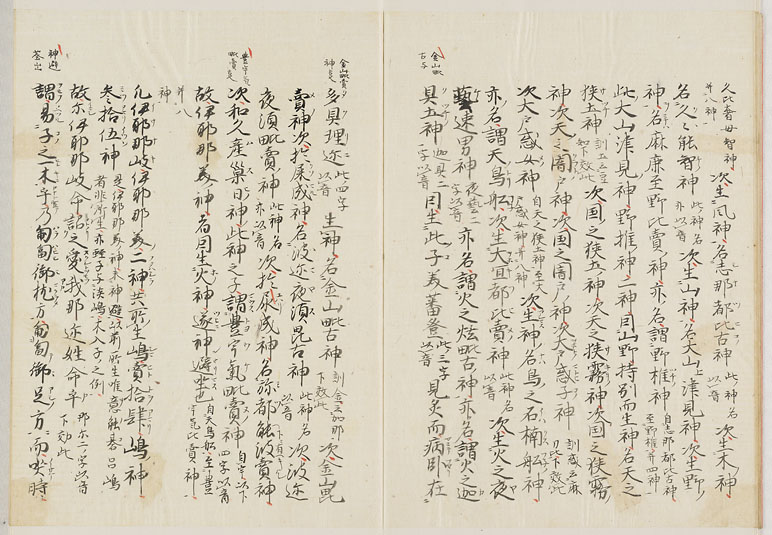 久比奢母智神 次生風神名志那都比古神 此神名以音 次生木神
幷八神
名久々能智神 此神名亦以音 次生山神名大山上津見神次生野
神名麻鹿屋野比賣神亦名謂野椎神 自志那都比古神至野椎幷四神
此大山津見神野推神二神因山野持別而生神名天之
狭土神 訓土云豆知下效此 次国之狭土神次天之狭霧神次国之狭霧
神次天之闇戸神次国之闇戸神次大戸惑子神 訓惑云麻刀比下效此
次大戸惑女神 自天之狭土神至大戸惑女神幷八神 次生神名鳥之石楠船神
亦名謂天鳥船次生大宜都比賣神 此神名以音 次生火之夜
藝速男神 夜藝二字以音 亦名謂火之炫毗古神亦名謂火之迦
具土神 迦具二字以音 因生此子美蕃登 此三字以音 見炙而病臥在
多具理迩 此四字以音 生神名金山毗古神 訓金云加那下效此 次金山毗
賣神次於屎成神名波迩夜須毗古神 此神名以音 次波迩
夜須毗賣神 此神名亦以音 次於尿成神名弥都能波賣神
次和久産巢日神此神之子謂豊宇氣毗賣神 自宇以下四字以音
故伊耶那美神者因生火神遂神避坐也 自天鳥船至豊宇氣比賣神
幷八神
凢伊耶那岐伊耶那美二神共所生嶋壹拾肆嶋神
參拾伍神 是伊耶那美神未神避以前所生唯意能碁呂嶋者非所生亦蛭子淡嶋不入子之例
故尓伊耶那岐命詔之愛我那迩妹命乎 那迩二字以音下効此
謂易子之一木乎乃匍匐御枕方匍匐御足方而哭時